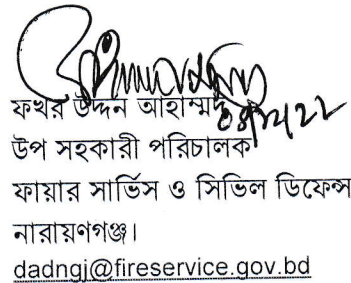 ফখর উদ্দন আহাম্মদ
উপ সহকারী পরিচালক
ফায়ার সার্ভিস ও সিভিল ডিফেন্স
নারায়ণগঞ্জ।
dadngj@fireservice.gov.bd